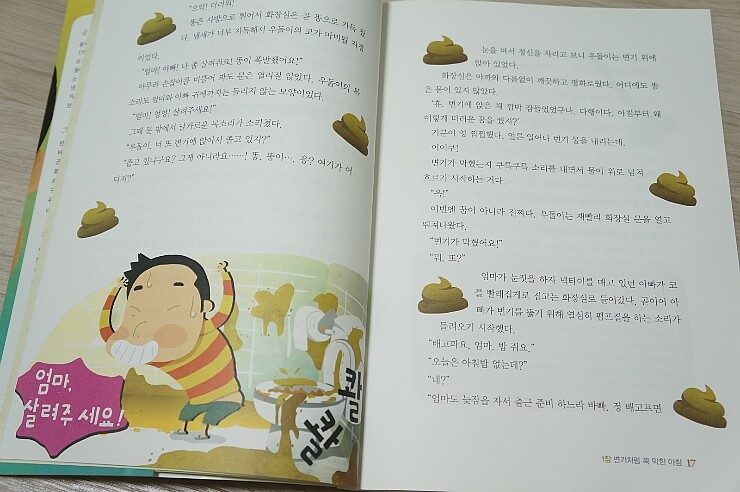 "으악! 더러워!
똥은 사방으로 튀어서 화장실은 곧 똥으로 가득 찼
다. 냄새가 너무 지독해서 우동이의 코가 마비될 지경
이었다.
"엄마! 아빠! 나 좀 살려줘요! 똥이 폭발했어요!"
아무리 손잡이를 비틀어 봐도 문은 열리지 않았다. 우동이의 목
소리도 엄마와 아빠 귀에까지는 들리지 않는 모양이었다.
"엄마! 엄멈! 살려주세요!"
그때 문 밖에서 날카로운 목소리가 소리쳤다.
"우동이, 너 또 변기에 앉아서 졸고 있지?"
"졸고 있다구요? 그게 아니라요……! 똥, 똥이…. 응? 여기가 어
디지?"
엄마,
살려주 세요!
콸
콸
눈을 떠서 정신을 차리고 보니 우동이는 변기 위에
앉아 있었다.
화장실은 아까와 다름없이 깨끗하고 평화로웠다. 어디에도 똥
은 묻어 있지 않았다.
'휴, 변기에 앉은 채 깜박 잠들었었구나. 다행이다. 아침부터 왜
이렇게 더러운 꿈을 꿨지?'
기분이 영 찜찜했다. 얼른 일어나 변기 물을 내리는데,
어이쿠!
변기가 막혔는지 쿠륵쿠륵 소리를 내면서 물이 위로 넘쳐
흐르기 시작하는 거다.
"윽!"
이번엔 꿈이 아니라 진짜다. 우동이는 재빨리 화장실 문을 열고
뛰쳐나왔다.
"변기가 막혔어요!"
"뭐, 또?"
엄마가 눈짓을 하자 넥타이를 매고 있던 아빠가 코
를 빨래집게로 집고는 화장실로 들어갔다. 곧이어 아
빠가 변기를 뚫기 위해 열심히 펌프질을 하는 소리가
들려오기 시작했다.
"배고파요. 엄마, 밥 줘요."
"오늘은 아침밥 없는데?"
"네?"
"엄마도 늦잠을 자서 출근 준비 하느라 바빠. 정 배고프면
1장 변기처럼 꽉 막힌 아침 17